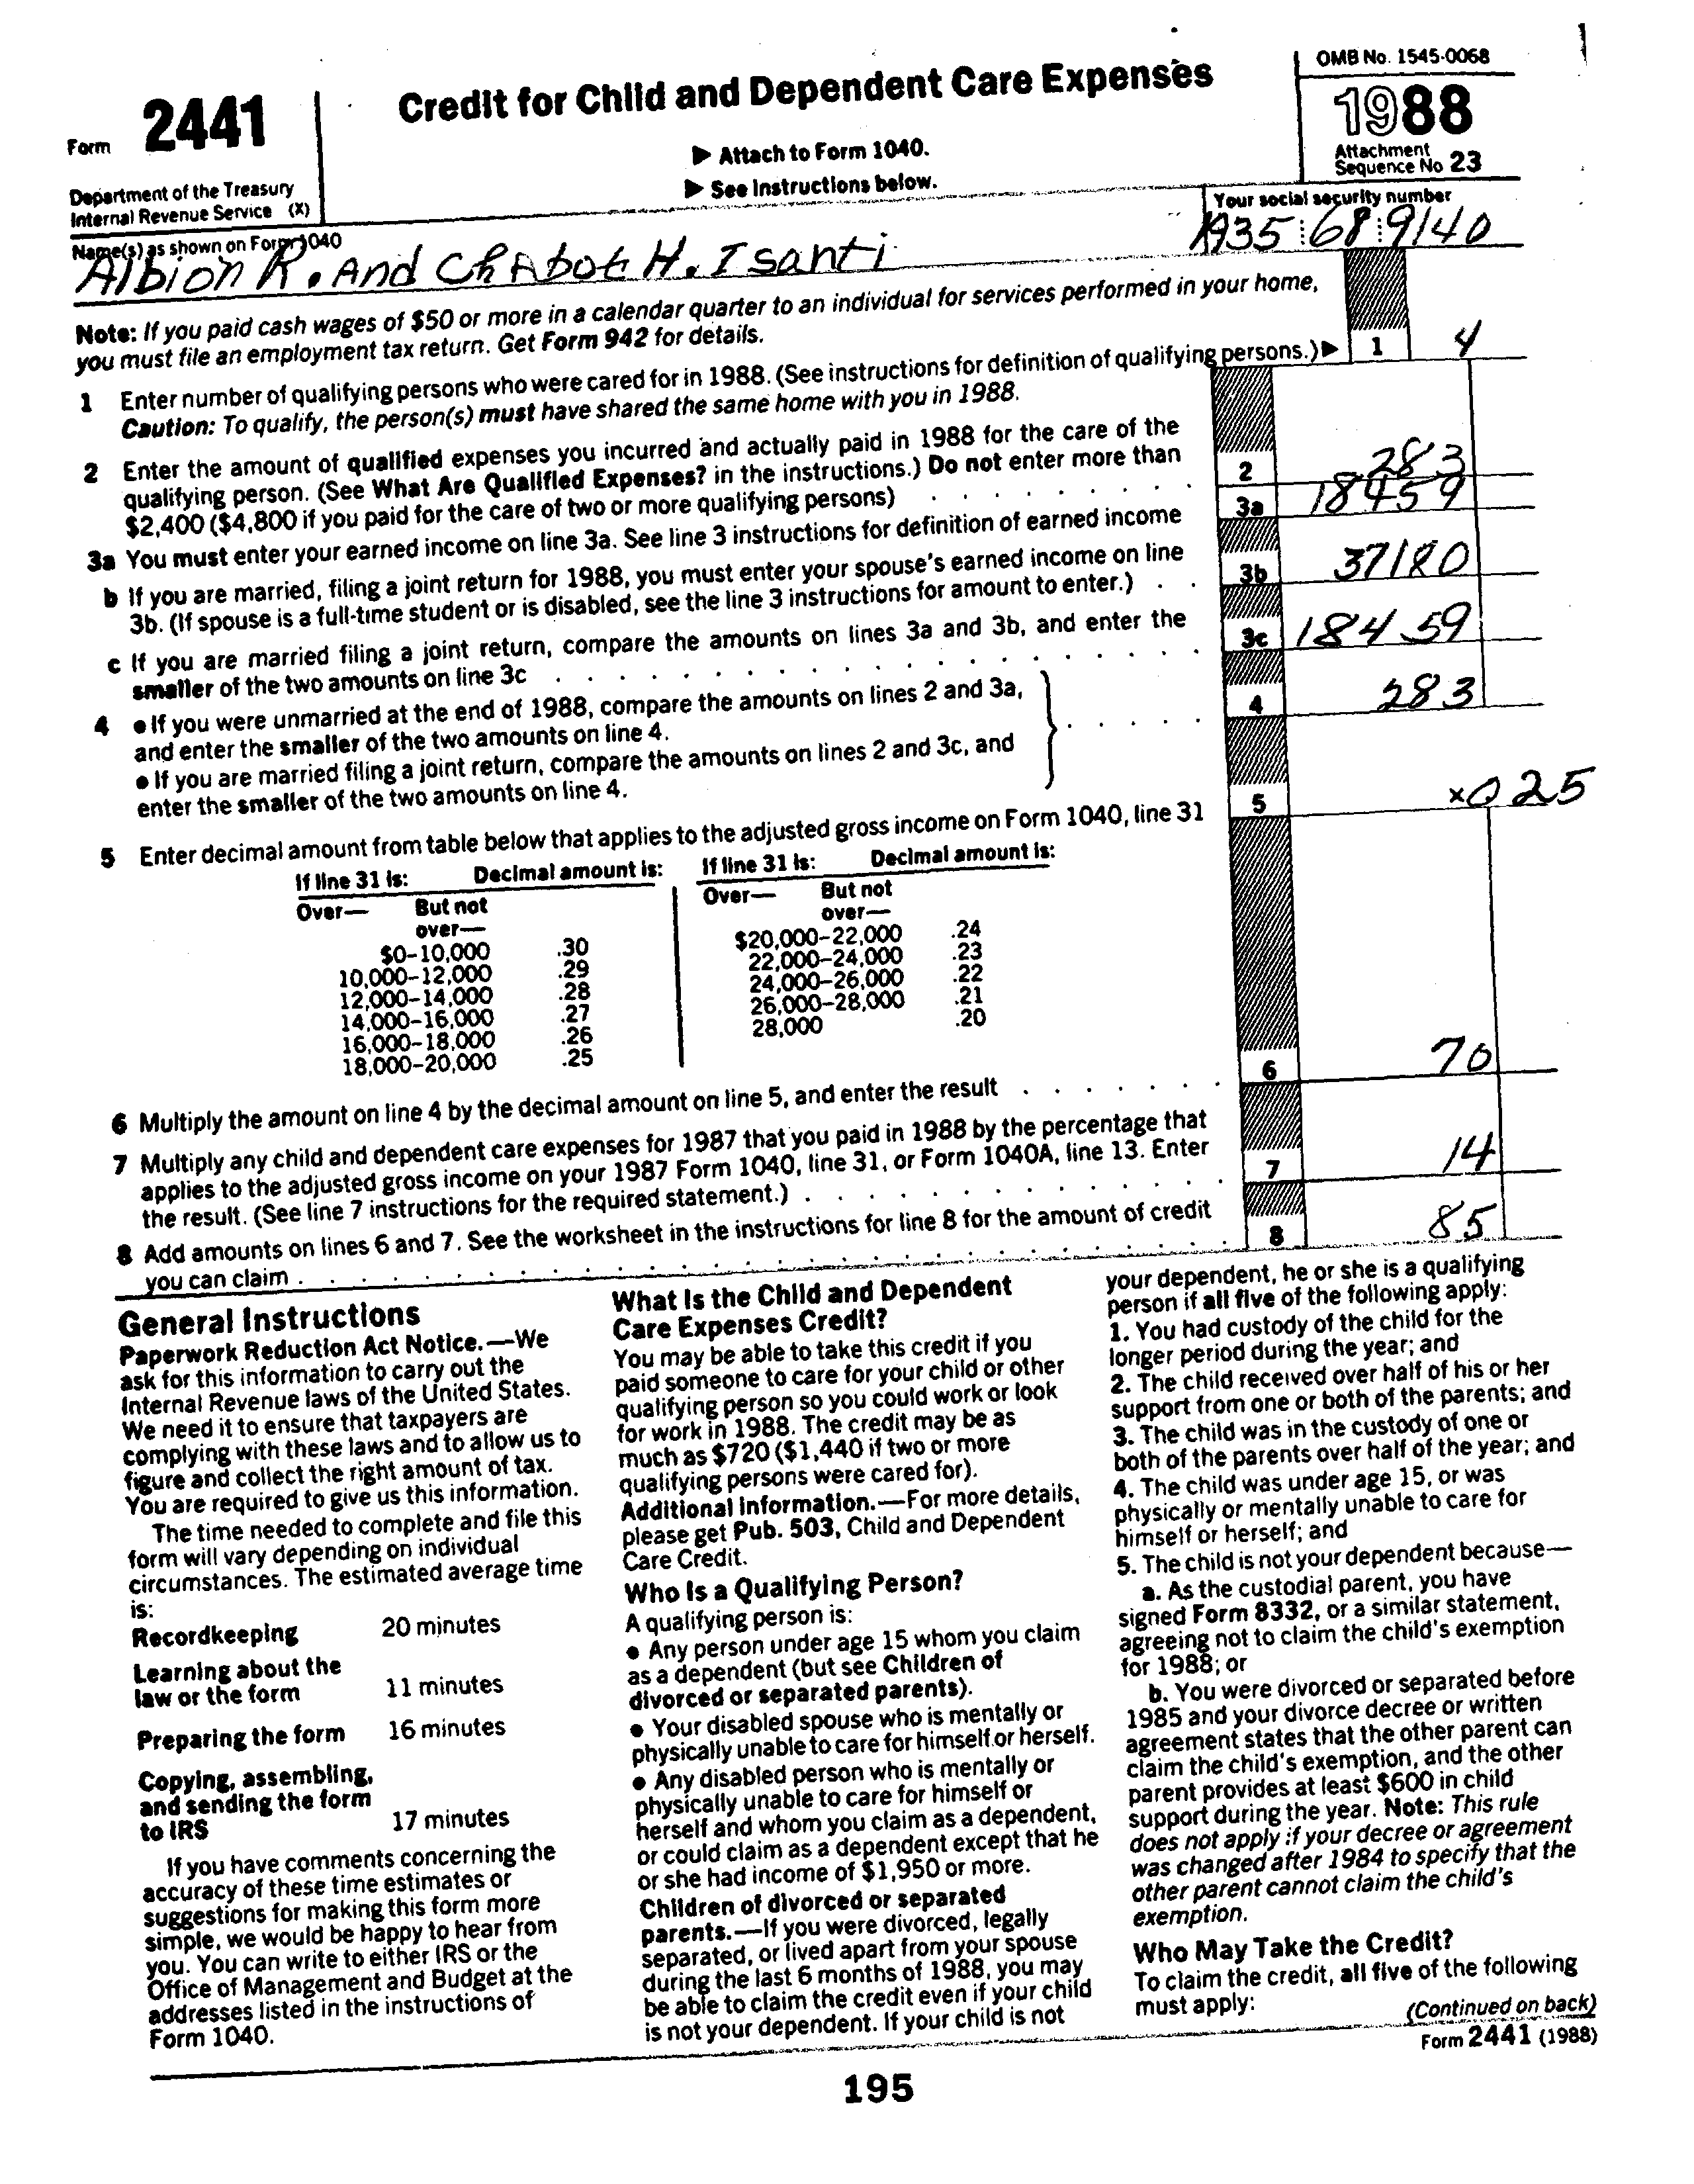 OMB No. 1545-0068
Form 2441
Credit for Child and Dependent Care Expenses
1988
▶ Attach to Form 1040.
▶ See Instructions below.
Attachment
Sequence No 23
Department of the Treasury
Internal Revenue Service (X)
Name(s) as shown on Form 1040
Your social security number
Albion R. And Chabot H. Isanti
935 68 9140
Note: If you paid cash wages of $50 or more in a calendar quarter to an individual for services performed in your home,
you must file an employment tax return. Get Form 942 for details.
1 Enter number of qualifying persons who were cared for in 1988. (See instructions for definition of qualifying persons.)▶ 1 4
Caution: To qualify, the person(s) must have shared the same home with you in 1988.
2 Enter the amount of qualified expenses you incurred and actually paid in 1988 for the care of the
qualifying person. (See What Are Qualified Expenses? in the instructions.) Do not enter more than
$2,400 ($4,800 if you paid for the care of two or more qualifying persons) . . . . . . . . . 2 283
3a You must enter your earned income on line 3a. See line 3 instructions for definition of earned income 3a 18459
b If you are married, filing a joint return for 1988, you must enter your spouse's earned income on line
3b. (If spouse is a full-time student or is disabled, see the line 3 instructions for amount to enter.) . . 3b 37180
c If you are married filing a joint return, compare the amounts on lines 3a and 3b, and enter the
smaller of the two amounts on line 3c . . . . . . . . . . . . . . . . 3c 18459
4 ● If you were unmarried at the end of 1988, compare the amounts on lines 2 and 3a,
and enter the smaller of the two amounts on line 4.
● If you are married filing a joint return, compare the amounts on lines 2 and 3c, and
enter the smaller of the two amounts on line 4.
. . . . . 4 283
5 Enter decimal amount from table below that applies to the adjusted gross income on Form 1040, line 31 5 ×0 25
If line 31 is: Decimal amount is: If line 31 is: Decimal amount is:
Over— But not over— Over— But not over—
$0–10,000 .30 $20,000–22,000 .24
10,000–12,000 .29 22,000–24,000 .23
12,000–14,000 .28 24,000–26,000 .22
14,000–16,000 .27 26,000–28,000 .21
16,000–18,000 .26 28,000 .20
18,000–20,000 .25
6 Multiply the amount on line 4 by the decimal amount on line 5, and enter the result . . . . . . . 6 70
7 Multiply any child and dependent care expenses for 1987 that you paid in 1988 by the percentage that
applies to the adjusted gross income on your 1987 Form 1040, line 31, or Form 1040A, line 13. Enter
the result. (See line 7 instructions for the required statement.) . . . . . . . . . . . . . . 7 14
8 Add amounts on lines 6 and 7. See the worksheet in the instructions for line 8 for the amount of credit
you can claim . . . . . . . . . . . . . . . . . . . . . . 8 85
General Instructions
Paperwork Reduction Act Notice.—We
ask for this information to carry out the
Internal Revenue laws of the United States.
We need it to ensure that taxpayers are
complying with these laws and to allow us to
figure and collect the right amount of tax.
You are required to give us this information.
The time needed to complete and file this
form will vary depending on individual
circumstances. The estimated average time
is:
Recordkeeping 20 minutes
Learning about the
law or the form 11 minutes
Preparing the form 16 minutes
Copying, assembling,
and sending the form
to IRS 17 minutes
If you have comments concerning the
accuracy of these time estimates or
suggestions for making this form more
simple, we would be happy to hear from
you. You can write to either IRS or the
Office of Management and Budget at the
addresses listed in the instructions of
Form 1040.
What Is the Child and Dependent
Care Expenses Credit?
You may be able to take this credit if you
paid someone to care for your child or other
qualifying person so you could work or look
for work in 1988. The credit may be as
much as $720 ($1,440 if two or more
qualifying persons were cared for).
Additional Information.—For more details,
please get Pub. 503, Child and Dependent
Care Credit.
Who Is a Qualifying Person?
A qualifying person is:
● Any person under age 15 whom you claim
as a dependent (but see Children of
divorced or separated parents).
● Your disabled spouse who is mentally or
physically unable to care for himself or herself.
● Any disabled person who is mentally or
physically unable to care for himself or
herself and whom you claim as a dependent,
or could claim as a dependent except that he
or she had income of $1,950 or more.
Children of divorced or separated
parents.—If you were divorced, legally
separated, or lived apart from your spouse
during the last 6 months of 1988, you may
be able to claim the credit even if your child
is not your dependent. If your child is not
your dependent, he or she is a qualifying
person if all five of the following apply:
1. You had custody of the child for the
longer period during the year; and
2. The child received over half of his or her
support from one or both of the parents; and
3. The child was in the custody of one or
both of the parents over half of the year; and
4. The child was under age 15, or was
physically or mentally unable to care for
himself or herself; and
5. The child is not your dependent because—
a. As the custodial parent, you have
signed Form 8332, or a similar statement,
agreeing not to claim the child's exemption
for 1988; or
b. You were divorced or separated before
1985 and your divorce decree or written
agreement states that the other parent can
claim the child's exemption, and the other
parent provides at least $600 in child
support during the year. Note: This rule
does not apply if your decree or agreement
was changed after 1984 to specify that the
other parent cannot claim the child's
exemption.
Who May Take the Credit?
To claim the credit, all five of the following
must apply:
(Continued on back)
Form 2441 (1988)
195